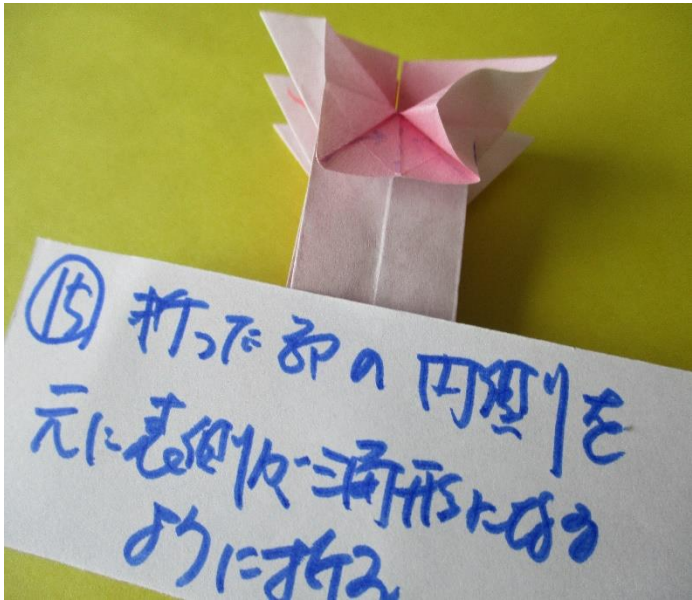 ⑮ 折った部の内側を
元に表側が三角形になる
ように折る